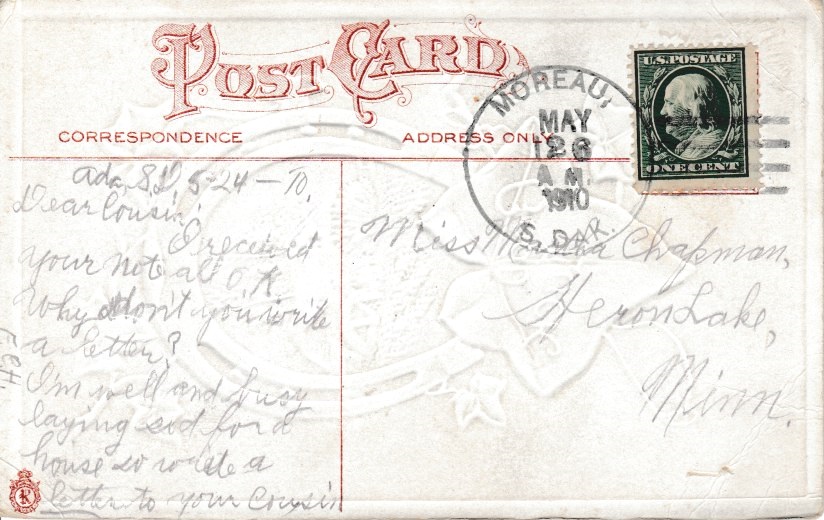 POST CARD
CORRESPONDENCE
ADDRESS ONLY
MOREAU,
MAY
26
A M.
1910
S. DAK.
U.S. POSTAGE
ONE CENT
Ada, S.D. 5-24-10.
Dear Cousin:
I received
your note all O.K
Why don't you write
a letter?
I'm well and busy
laying sod for a
house so write a
letter to your Cousin
Miss Chapman,
Heron Lake,
Minn.